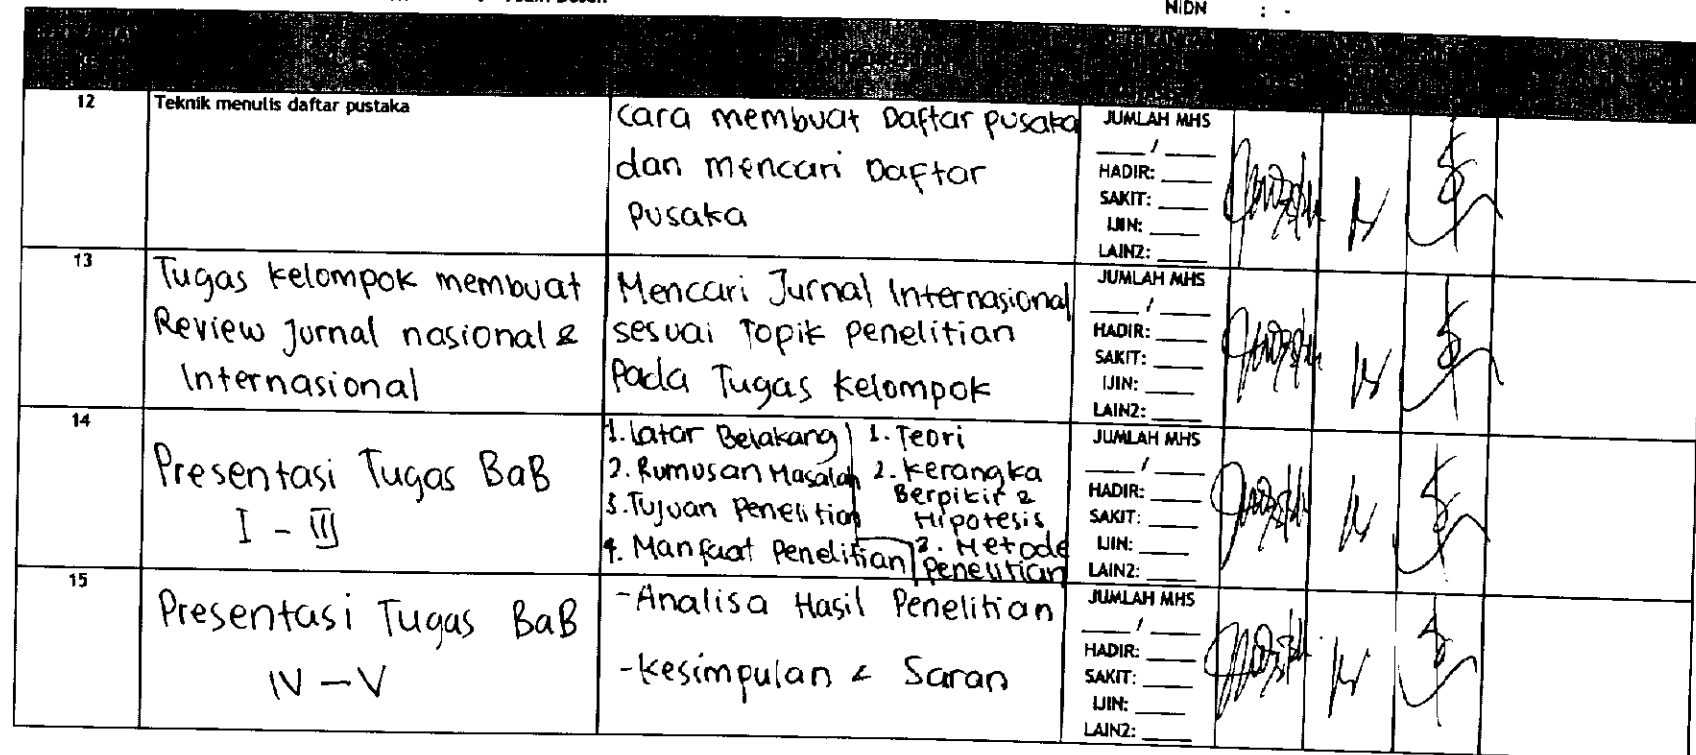 NIDN : -
12
Teknik menulis daftar pustaka
Cara membuat Daftar pusaka
dan mencari Daftar
pusaka
JUMLAH MHS
___ / ___
HADIR: ___
SAKIT: ___
IJIN: ___
LAIN2: ___
13
Tugas kelompok membuat
Review Jurnal nasional &
Internasional
Mencari Jurnal Internasional
sesuai Topik penelitian
Pada Tugas kelompok
JUMLAH MHS
___ / ___
HADIR: ___
SAKIT: ___
IJIN: ___
LAIN2: ___
14
Presentasi Tugas BaB
I - III
1. Latar Belakang
2. Rumusan Masalah
3. Tujuan Penelitian
4. Manfaat Penelitian
1. Teori
2. Kerangka
Berpikir &
Hipotesis
3. Metode
penelitian
JUMLAH MHS
___ / ___
HADIR: ___
SAKIT: ___
IJIN: ___
LAIN2: ___
15
Presentasi Tugas BaB
IV - V
- Analisa Hasil Penelitian
- Kesimpulan & Saran
JUMLAH MHS
___ / ___
HADIR: ___
SAKIT: ___
IJIN: ___
LAIN2: ___